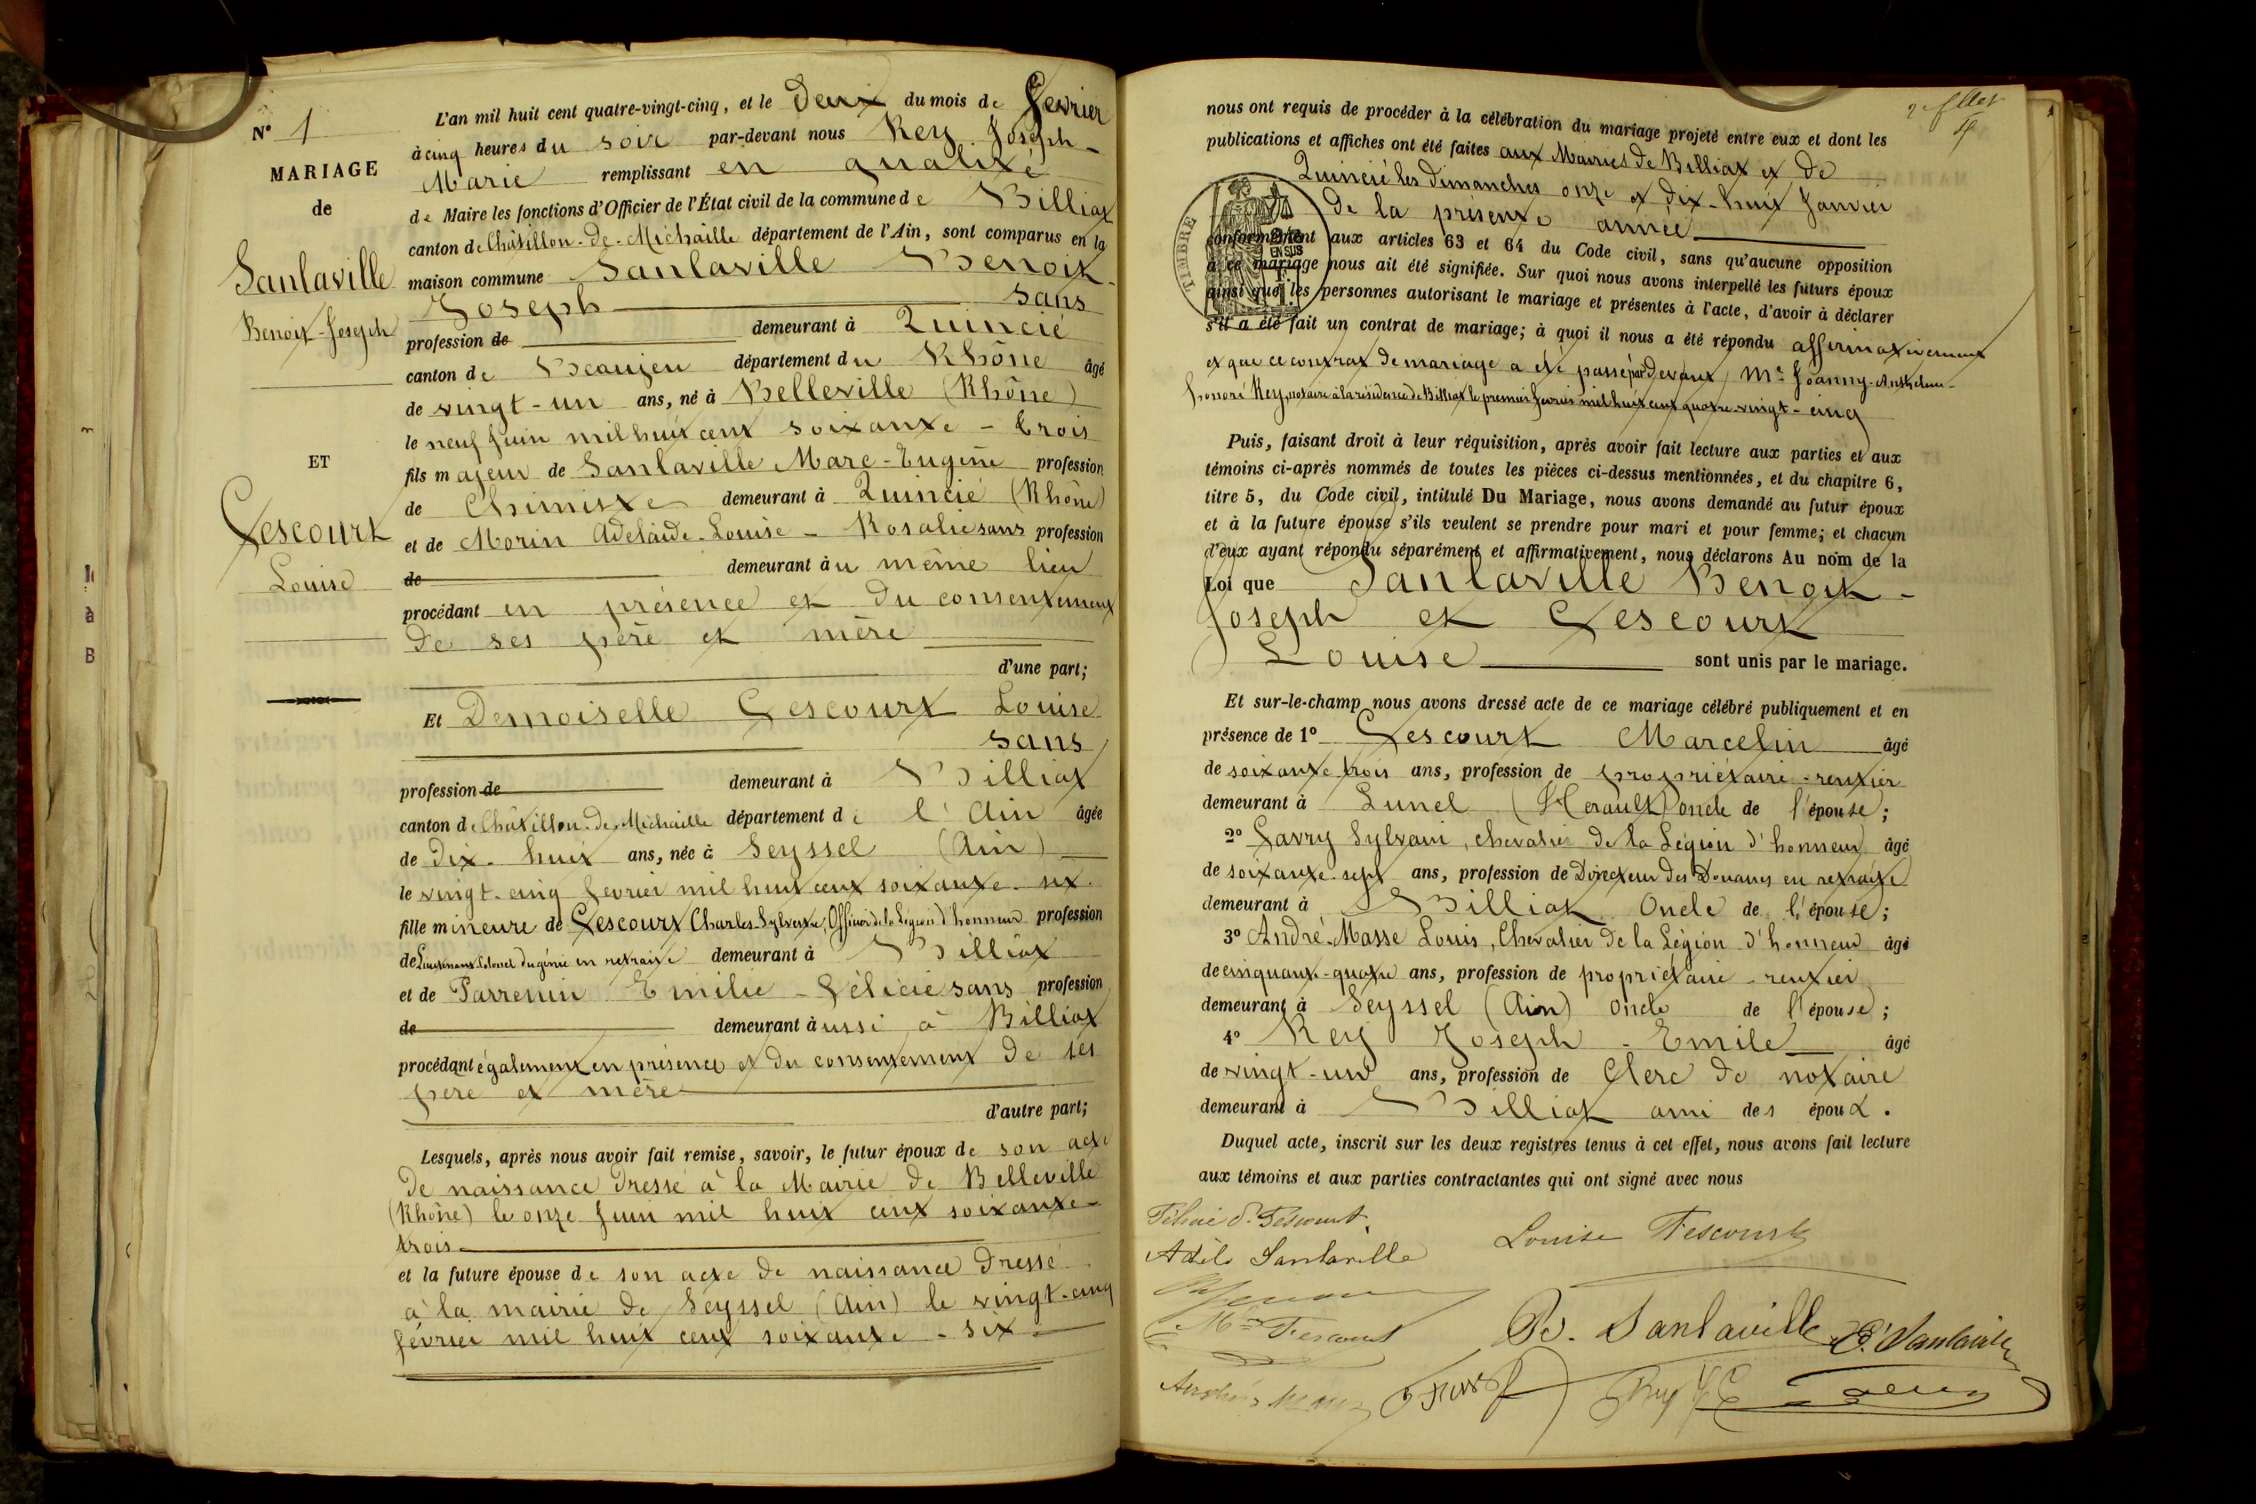 N° 1
MARIAGE
de
Sanlaville
Benoit-Joseph
ET
Fescourt
Louise
L'an mil huit cent quatre-vingt-cinq, et le deux du mois de Fevrier
à cinq heures du soir par-devant nous Rey Joseph-
Marie remplissant en qualité
de Maire les fonctions d'Officier de l'État civil de la commune de Billiat
canton de Châtillon-de-Michaille département de l'Ain, sont comparus en la
maison commune Sanlaville Benoit-
Joseph sans
profession de demeurant à Quincié
canton de Beaujeu département du Rhône âgé
de vingt-un ans, né à Belleville (Rhône)
le neuf Juin mil huit cent soixante-trois
fils majeur de Sanlaville Marc-Eugène profession
de Chimiste demeurant à Quincié (Rhône)
et de Morin Adelaïde-Louise-Rosalie sans profession
de demeurant au même lieu
procédant en présence et du consentement
de ses père et mère
d'une part;
Et Demoiselle Fescourt Louise
sans
profession de demeurant à Billiat
canton de Châtillon-de-Michaille département de l'Ain âgée
de dix-huit ans, née à Seyssel (Ain)
le vingt-cinq fevrier mil huit cent soixante-six
fille mineure de Fescourt Charles-Sylvestre, Officier de la Légion d'honneur profession
de Lieutenant Colonel du génie en retraite demeurant à Billiat
et de Parrenin Emilie-Félicie sans profession
de demeurant aussi à Billiat
procédant également en présence et du consentement de ses
père et mère
d'autre part;
Lesquels, après nous avoir fait remise, savoir, le futur époux de son acte
de naissance dressé à la Mairie de Belleville
(Rhône) le onze Juin mil huit cent soixante-
trois
et la future épouse de son acte de naissance dressé
à la mairie de Seyssel (Ain) le vingt-cinq
février mil huit cent soixante-six
4
nous ont requis de procéder à la célébration du mariage projeté entre eux et dont les
publications et affiches ont été faites aux Mairies de Billiat et de
Quincié les dimanches onze et dix-huit Janvier
de la présente année
conformément aux articles 63 et 64 du Code civil, sans qu'aucune opposition
à ce mariage nous ait été signifiée. Sur quoi nous avons interpellé les futurs époux
ainsi que les personnes autorisant le mariage et présentes à l'acte, d'avoir à déclarer
s'il a été fait un contrat de mariage; à quoi il nous a été répondu affirmativement
et que ce contrat de mariage a été passé par devant Me Joanny-Anthelme-
honoré Rey, notaire à la résidence de Billiat le premier fevrier mil huit cent quatre-vingt-cinq
TIMBRE
Puis, faisant droit à leur réquisition, après avoir fait lecture aux parties et aux
témoins ci-après nommés de toutes les pièces ci-dessus mentionnées, et du chapitre 6,
titre 5, du Code civil, intitulé Du Mariage, nous avons demandé au futur époux
et à la future épouse s'ils veulent se prendre pour mari et pour femme; et chacun
d'eux ayant répondu séparément et affirmativement, nous déclarons Au nom de la
Loi que Sanlaville Benoit-
Joseph et Fescourt
Louise sont unis par le mariage.
Et sur-le-champ nous avons dressé acte de ce mariage célébré publiquement et en
présence de 1° Fescourt Marcelin âgé
de soixante-trois ans, profession de propriétaire-rentier
demeurant à Lunel (Herault) oncle de l'épouse;
2° Favry Sylvain, chevalier de la Légion d'honneur âgé
de soixante-sept ans, profession de Directeur des Douanes en retraite
demeurant à Billiat Oncle de l'épouse;
3° André-Masse Louis, Chevalier de la Légion d'honneur âgé
de cinquante-quatre ans, profession de propriétaire-rentier
demeurant à Seyssel (Ain) oncle de l'épouse;
4° Rey Joseph-Emile âgé
de vingt-un ans, profession de Clerc de notaire
demeurant à Billiat ami des époux.
Duquel acte, inscrit sur les deux registres tenus à cet effet, nous avons fait lecture
aux témoins et aux parties contractantes qui ont signé avec nous
Félicie d. Fescourt.
Adèle Sanlaville
Louise Fescourt
Fescourt
B. Sanlaville
E. Sanlaville
Rey J E